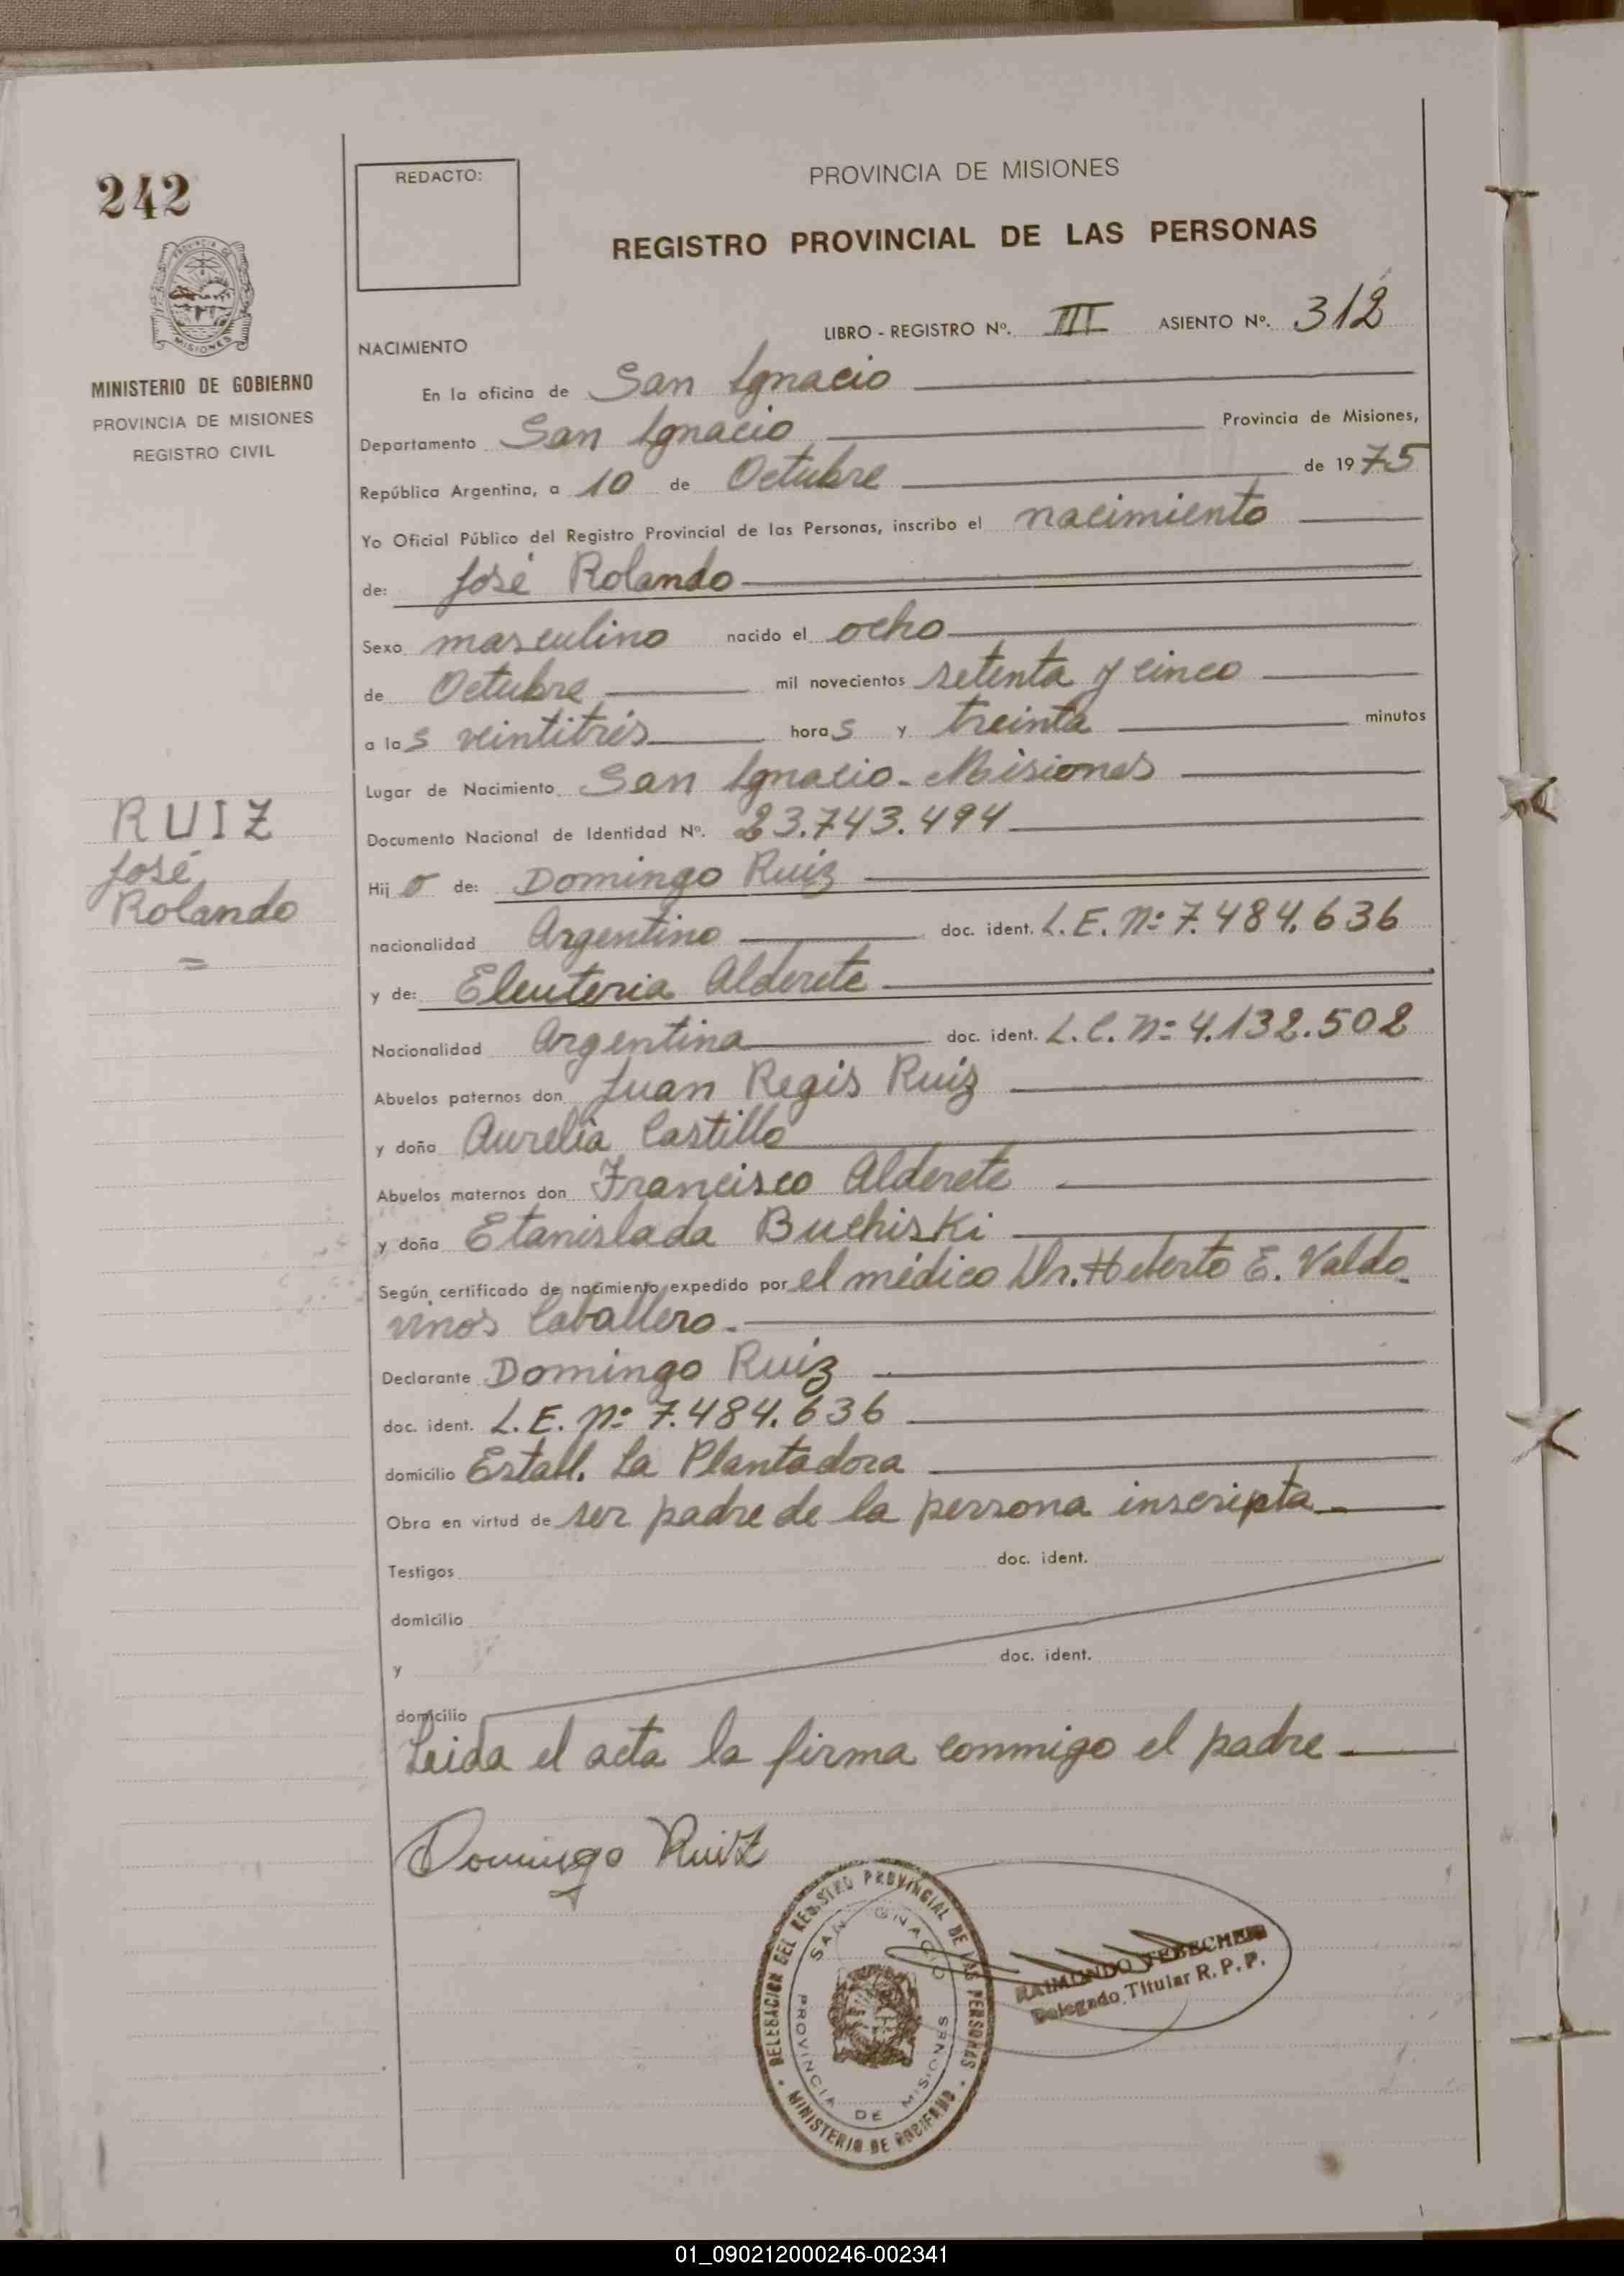 242
PROVINCIA DE
MISIONES
MINISTERIO DE GOBIERNO
PROVINCIA DE MISIONES
REGISTRO CIVIL
RUIZ
José
Rolando
=
REDACTO:
PROVINCIA DE MISIONES
REGISTRO PROVINCIAL DE LAS PERSONAS
LIBRO - REGISTRO Nº. III ASIENTO Nº. 312
NACIMIENTO
En la oficina de San Ignacio
Departamento San Ignacio Provincia de Misiones,
República Argentina, a 10 de Octubre de 1975
Yo Oficial Público del Registro Provincial de las Personas, inscribo el nacimiento
de: José Rolando
Sexo masculino nacido el ocho
de Octubre mil novecientos setenta y cinco
a las veintitrés horas y treinta minutos
Lugar de Nacimiento San Ignacio - Misiones
Documento Nacional de Identidad Nº. 23.743.494
Hijo de: Domingo Ruiz
nacionalidad Argentino doc. ident. L.E. Nº 7.484.636
y de: Eleuteria Alderete
Nacionalidad Argentina doc. ident. L.C. Nº 4.132.502
Abuelos paternos don Juan Regis Ruiz
y doña Aurelia Castillo
Abuelos maternos don Francisco Alderete
y doña Etanislada Buchiski
Según certificado de nacimiento expedido por el médico Dr. Heberto E. Valdo-
vinos Caballero.-
Declarante Domingo Ruiz
doc. ident. L.E. Nº 7.484.636
domicilio Establ. La Plantadora
Obra en virtud de ser padre de la persona inscripta
Testigos doc. ident.
domicilio
y doc. ident.
domicilio
Leida el acta la firma conmigo el padre
Domingo Ruiz
DELEGACION DEL REGISTRO PROVINCIAL DE LAS PERSONAS
SAN IGNACIO
PROVINCIA DE MISIONES
MINISTERIO DE GOBIERNO
RAIMUNDO
Delegado Titular R.P.P.
01_090212000246-002341